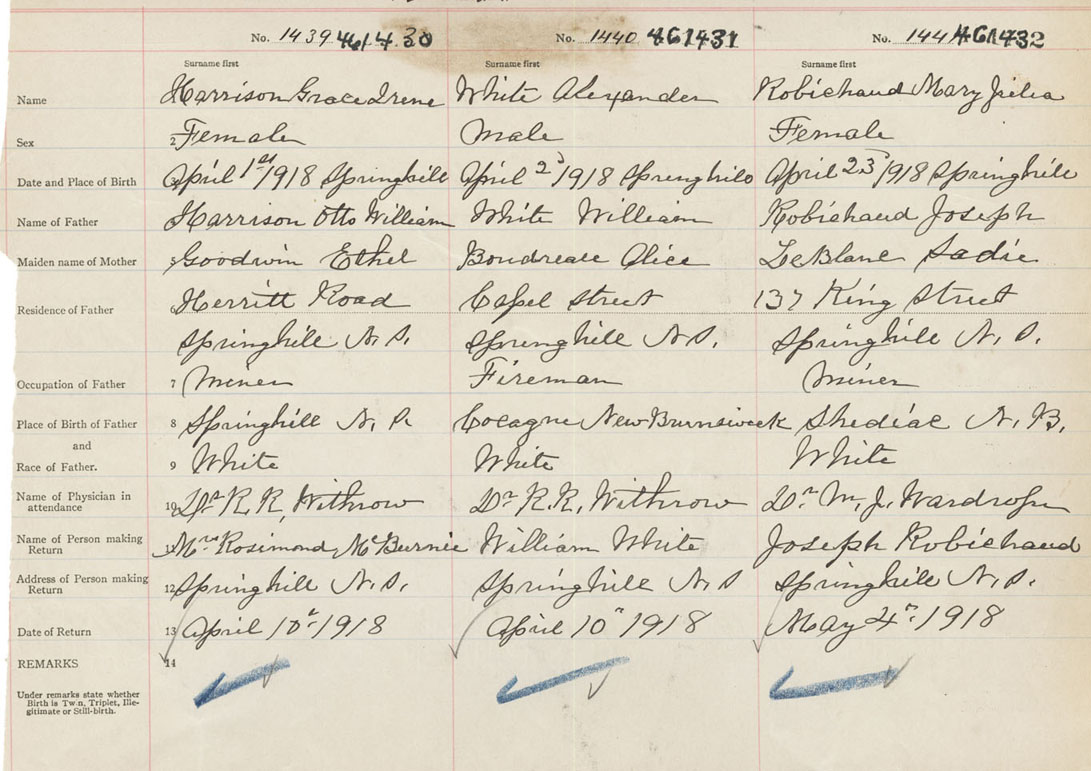 No. 1439 461430 No. 1440 461431 No. 1441 461432
Surname first Surname first Surname first
Name Harrison Grace Irene White Alexander Robichaud Mary Julia
Sex 2 Female Male Female
Date and Place of Birth 3 April 1st/1918 Springhill April 2d/1918 Springhill April 23d/1918 Springhill
Name of Father Harrison Otto William White William Robichaud Joseph
Maiden name of Mother 5 Goodwin Ethel Boudreau Alice LeBlanc Sadie
Residence of Father Herritt Road Capel Street 137 King Street
Springhill N.S. Springhill N.S. Springhill N.S.
Occupation of Father 7 Miner Fireman Miner
Place of Birth of Father 8 Springhill N.S. Cocagne New Burnsweek Shediac N.B.
and
Race of Father. 9 White White White
Name of Physician in
attendance 10 Dr R.R. Withrow Dr R.R. Withrow Dr W.J. Wardrope
Name of Person making
Return 11 Mrs Rosimond McBurnie William White Joseph Robichaud
Address of Person making
Return 12 Springhill N.S. Springhill N.S Springhill N.S.
Date of Return 13 April 10th 1918 April 10th 1918 May 4th 1918
REMARKS 14
Under remarks state whether
Birth is Twin, Triplet, Ille-
gitimate or Still-birth.